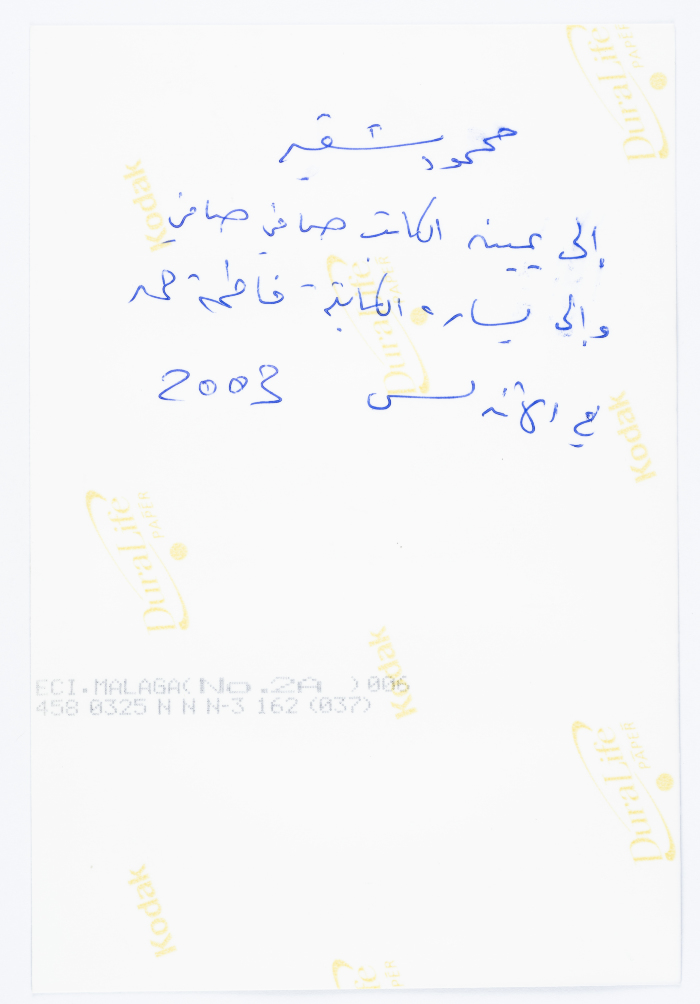 محمود شقير
إلى يمينه الكاتب صافي صافي
وإلى يساره الكاتبة فاطمة حمد
في الأندلس 2003
Kodak
DuraLife PAPER
Kodak
DuraLife PAPER
Kodak
DuraLife PAPER
Kodak
ECI.MALAGA(No.2A )006
458 0325 N N N-3 162 (037)
DuraLife PAPER
Kodak